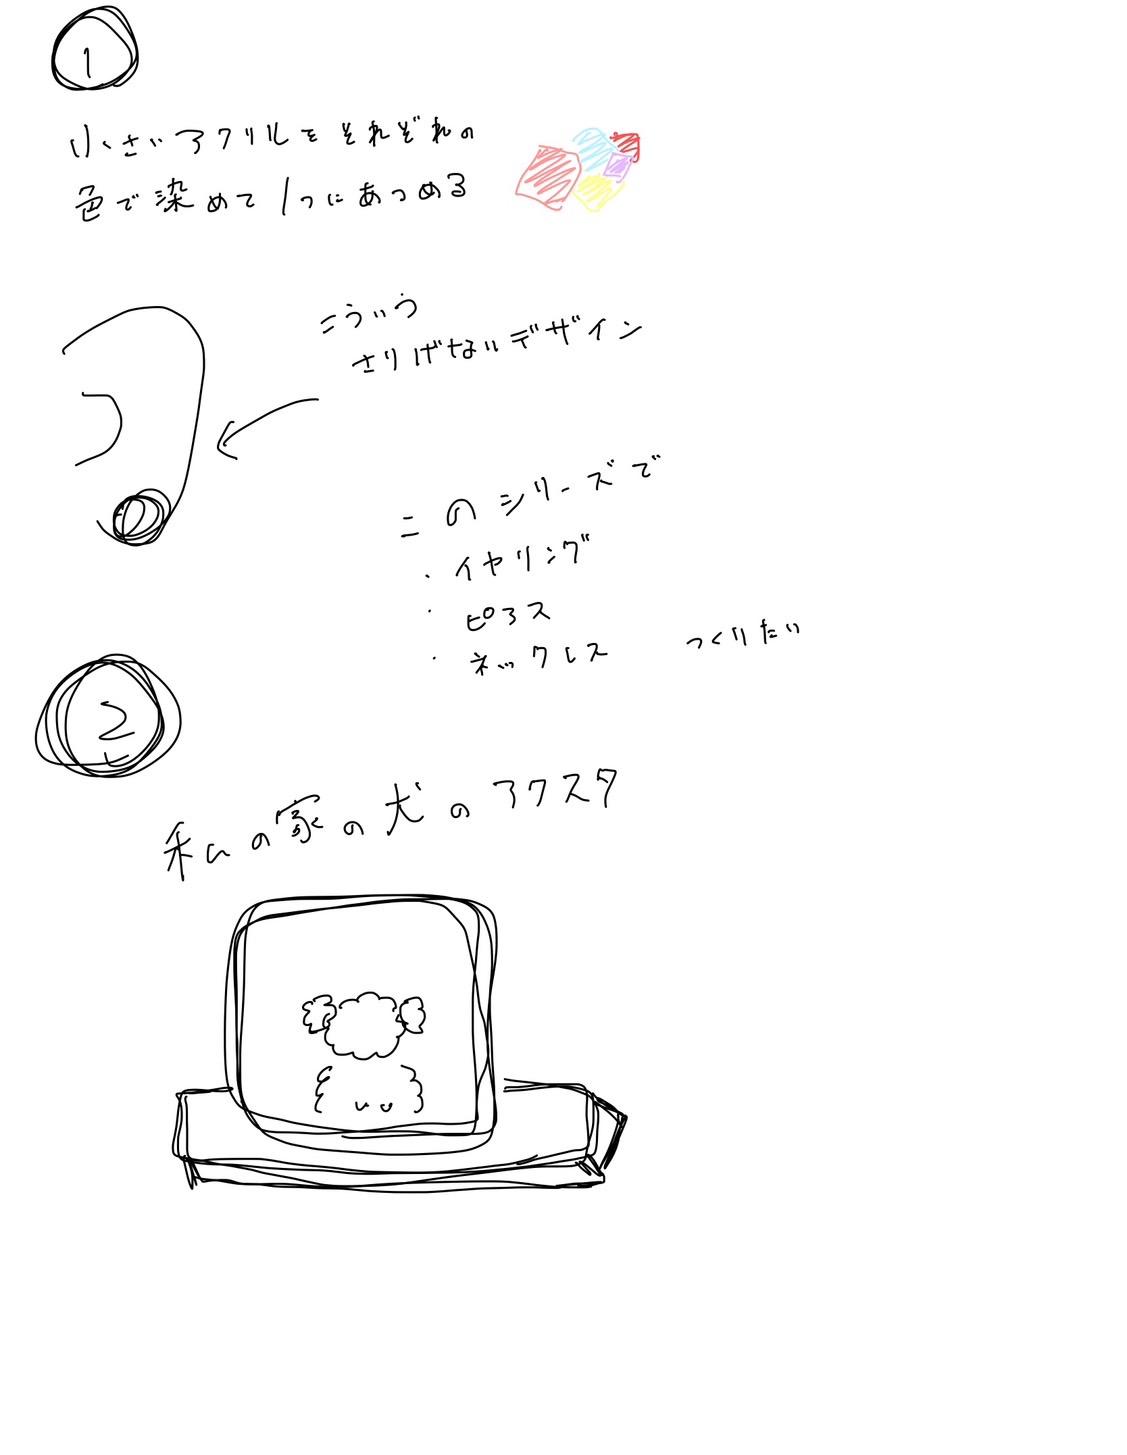 1
小さいアクリルをそれぞれの
色で染めて1つにあつめる
こういう
さりげないデザイン
このシリーズで
・イヤリング
・ピアス
・ネックレス つくりたい
2
私の家の犬のアクスタ